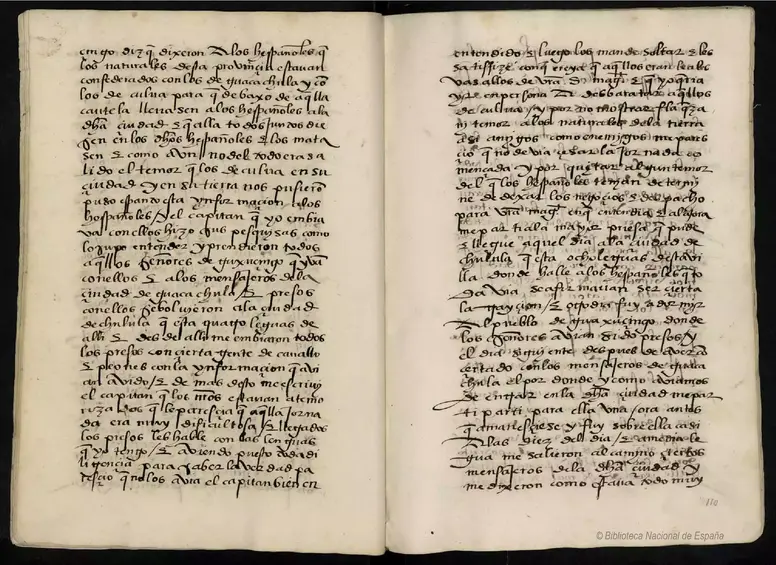 cingo diz q̃ dixeron A los hespañoles q̃
los naturales desta provinçia estavan
confederados con los de guacachula y cõ
los de culua para q̃ debaxo de aq̃lla
cautela llevasen a los hespañoles a la
dh̃a ciudad E q̃ alla todos juntos die
sen en los dh̃os hespañoles E los mata
sen E como Avn no del todo era sa
lido el temor q̃ los de culua en su
çiudad y en su tierra nos pusierõ
puso espanto esta ynformaçion a los
hespañoles / y el capitan q̃ yo embia
va con ellos hizo sus pesquisas como
lo supo entender y prendieron todos
aq̃llos señores de guaxuçingo q̃ yvã
con ellos E a los mensajeros de la
çiudad de guacachula / E presos
con ellos se bolvieron a la çiudad
de chulula q̃ esta quatro leguas de
alli E desde alli me embiaron todos
los presos con cierta gente de cavallo
E peones con la ynformaçion q̃ avi
an avido / E de mas desto me escrivi
el capitan q̃ los nr̃os estavan atemo
rizados q̃ le paresçia q̃ aq̃lla jorna
da era muy dificultosa / E llegados
los presos les hable con las lenguas
q̃ yo tengo / E aviendo puesto toda di
ligençia para saber la verdad pa
resçio q̃ no los avia el capitan bien en
entendido E luego los mande soltar E les
satisfize con q̃ creya q̃ aq̃llos eran leales
vasallos de vr̃a mag̃ E q̃ yo q̃ria
yr en persona A desbaratar aq̃llos
de culua / y por no mostrar flaq̃za
ni temor a los naturales de la tierra
asi amigos como enemigos me pares
çio q̃ no devia çesar la jornada co
mençada y por quitar algun temor
del q̃ los hespañoles tenian determi
ne de dexar los negoçios E despacho
para vr̃a mag̃ en q̃ entendia E a la ora
me parti a la mayor priesa q̃ pude
E llegue aquel dia a la çiudad de
chulula q̃ esta ocho leguas desta vi
lla donde halle a los hespañoles q̃ to
davia se afirmavan ser çierta
la trayçion / E otro dia fuy a dormir
Al pueblo de guaxuçingo donde
los señores avian sido presos / y
el dia siguiente despues de aver cõ
certado con los mensajeros de guaca
chula el por donde y como aviamos
de entrar en la dh̃a çiudad me par
ti para ella vna / ora antes
q̃ amanesçiese y fuy sobre ella casi
A las diez del dia / E a media le
gua me salieron al camino çiertos
mensajeros de la dh̃a ciudad y
me dixeron como estava todo muy
110
© Biblioteca Nacional de España